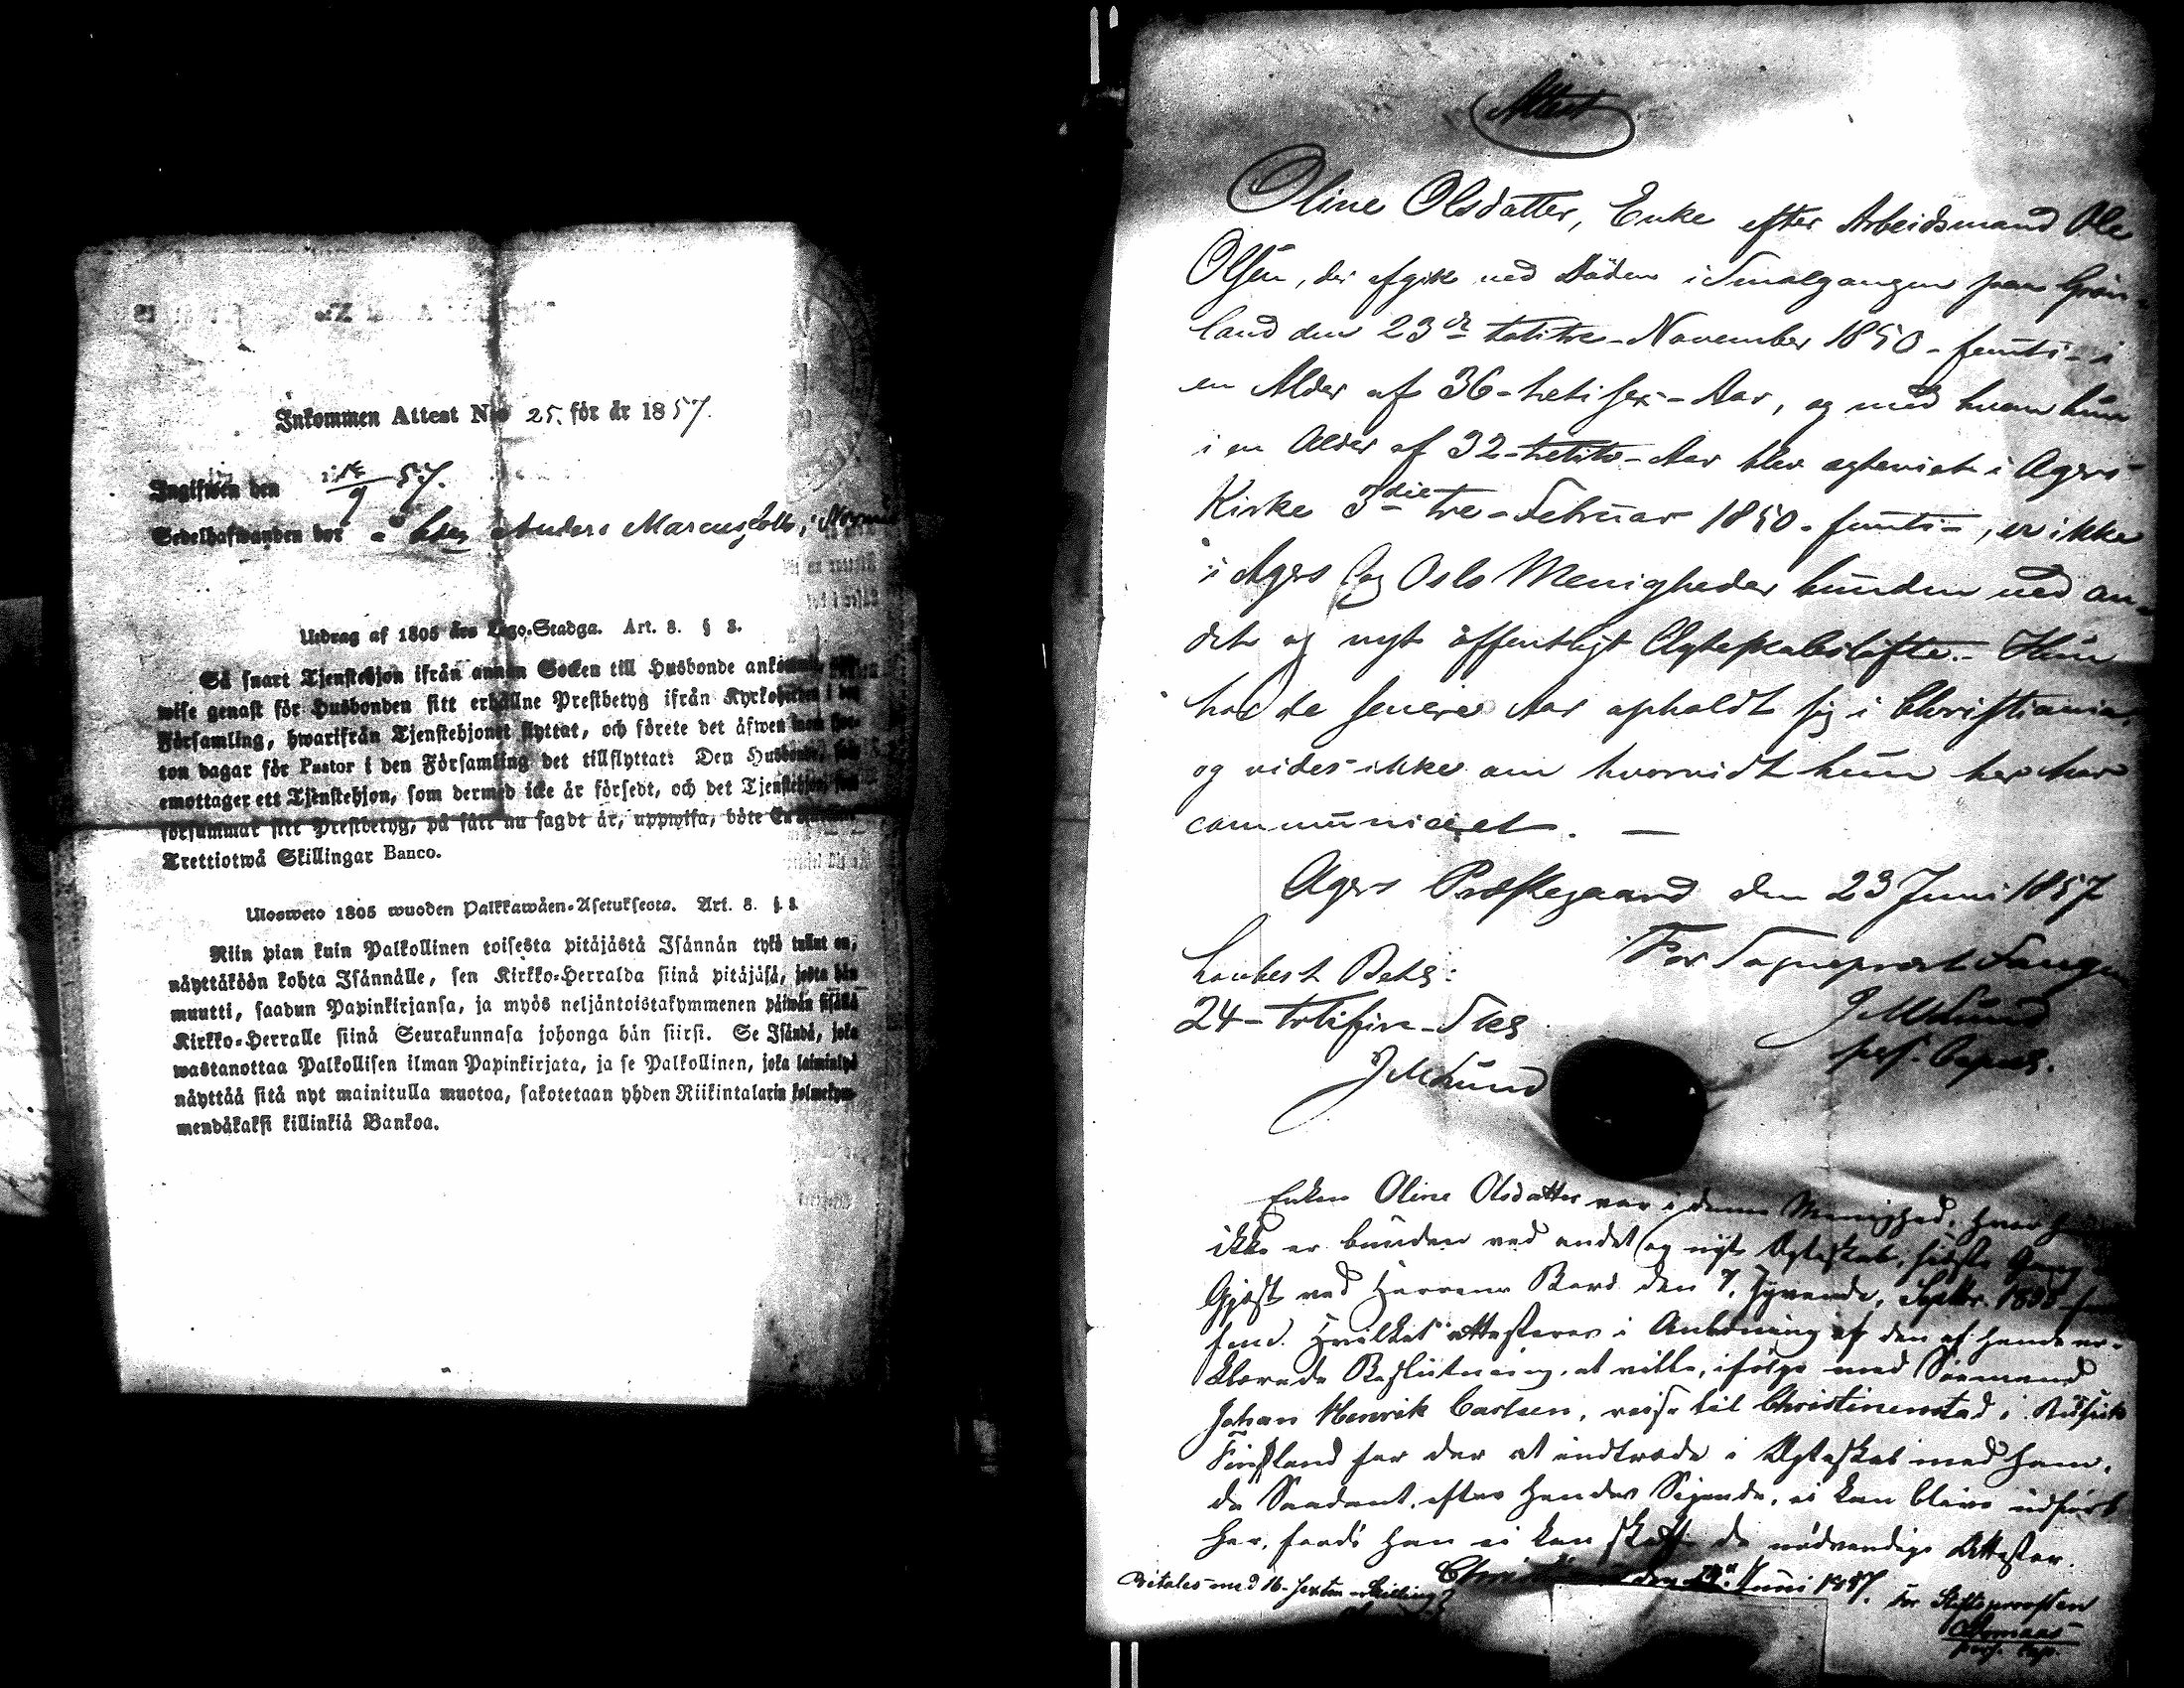 Inkommen Attest N:o 25. för år 1857.
Ingifwen den 9 57.
Sedelhafwanden bor Anders Marcus
Utdrag af 1805 års Lego-Stadga. Art. 8. § 8.
Så snart Tjenstehjon ifrån annan Socken till Husbonde ankommit,
wise genast för Husbonden sitt erhållne Prestbetyg ifrån Kyrkoherden i den
Församling, hwarifrån Tjenstehjonet flyttat, och förete det äfwen inom fjor-
ton dagar för Pastor i den Församling det tillflyttat: Den Husbonde, som
emottager ett Tjenstehjon, som dermed icke är försedt, och det Tjenstehjon, som
försummar sitt Prestbetyg, på sätt nu sagdt är, uppwisa, böte En
Trettiotwå Skillingar Banco.
Ulosweto 1805 wuoden Palkkawäen-Asetuksesta. Art. 8. §. 8.
Niin pian kuin Palkollinen toisesta pitäjästä Isännän tykö tullut on,
näyttäköön kohta Isännälle, sen Kirkko-Herralda siinä pitäjäsä, josta hän
muutti, saadun Papinkirjansa, ja myös neljäntoistakymmenen päiwän sisällä
Kirkko-Herralle siinä Seurakunnasa johonga hän siirsi. Se Isändä, joka
wastanottaa Palkollisen ilman Papinkirjata, ja se Palkollinen, joka laiminlyö
näyttää sitä nyt mainitulla muotoa, sakotetaan yhden Riikintalarin kolmekym-
mendäkaksi killinkiä Bankoa.
Attest
Oline Olsdatter, Enke efter Arbeidsmand Ole
Olsen, der afgik ved Döden i Smalgangen paa Grön-
land den 23de totitre November 1850 - femti - i
en Alder af 36 - tretisex - Aar, og med hvem hun
i en Alder af 32 - tretito - Aar blev egteviet i Agers
Kirke 3die tre - Februar 1850 - femti -, er ikke
i Agers og Oslo Menigheder bunden ved an-
det og nyt offentligt Ægteskabslöfte. - Hun
har de senere Aar opholdt sig i Christiania,
og vides ikke om hvorvidt hun her har
communiceret. -
Agers Præstegaard den 23 Juni 1857
For Sogneprest
24 - totifire - Sks
J M Lund
J M Lund
pers. Capel.
Enken Oline Olsdatter var i denne Menighed, hvor hun
ikke er bunden ved andet og nyt Ægteskab, sidste Gang
Gjest ved Herrens Bord den 7, syvende, Septbr.
Hvilket attesteres i Anledning af den af hende er-
klærede Beslutning, at ville, ifölge med Sömand
Johan Henrik Carlsen, reise til Christinenstad i Russisk
Finland for der at indtræde i Ægteskab med ham,
da Saadant, efter hendes Sigende, ei kan blive udfört
her, fordi han ei kan skaffe de nödvendige Attester.
Betales med 16 - sexten - Skilling
den Juni 1857. For Stiftsprovsten
pers. Cap.